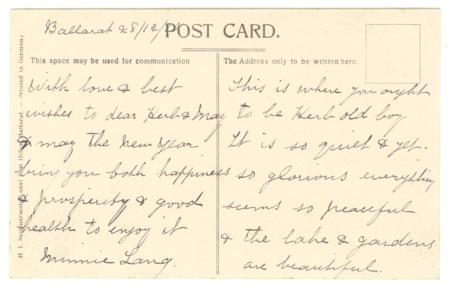 Ballarat 28/12/
POST CARD.
This space may be used for communication
The Address only to be written here.
With love & best
wishes to dear Herb & May
& may the New Year
bring you both happiness
& prosperity & good
health to enjoy it
Minnie Lang.
This is where you ought
to be Herb old boy
It is so quiet & yet
so glorious everything
seems so peaceful
& the lake & gardens
are beautiful.
Ballarat. — Printed in Germany